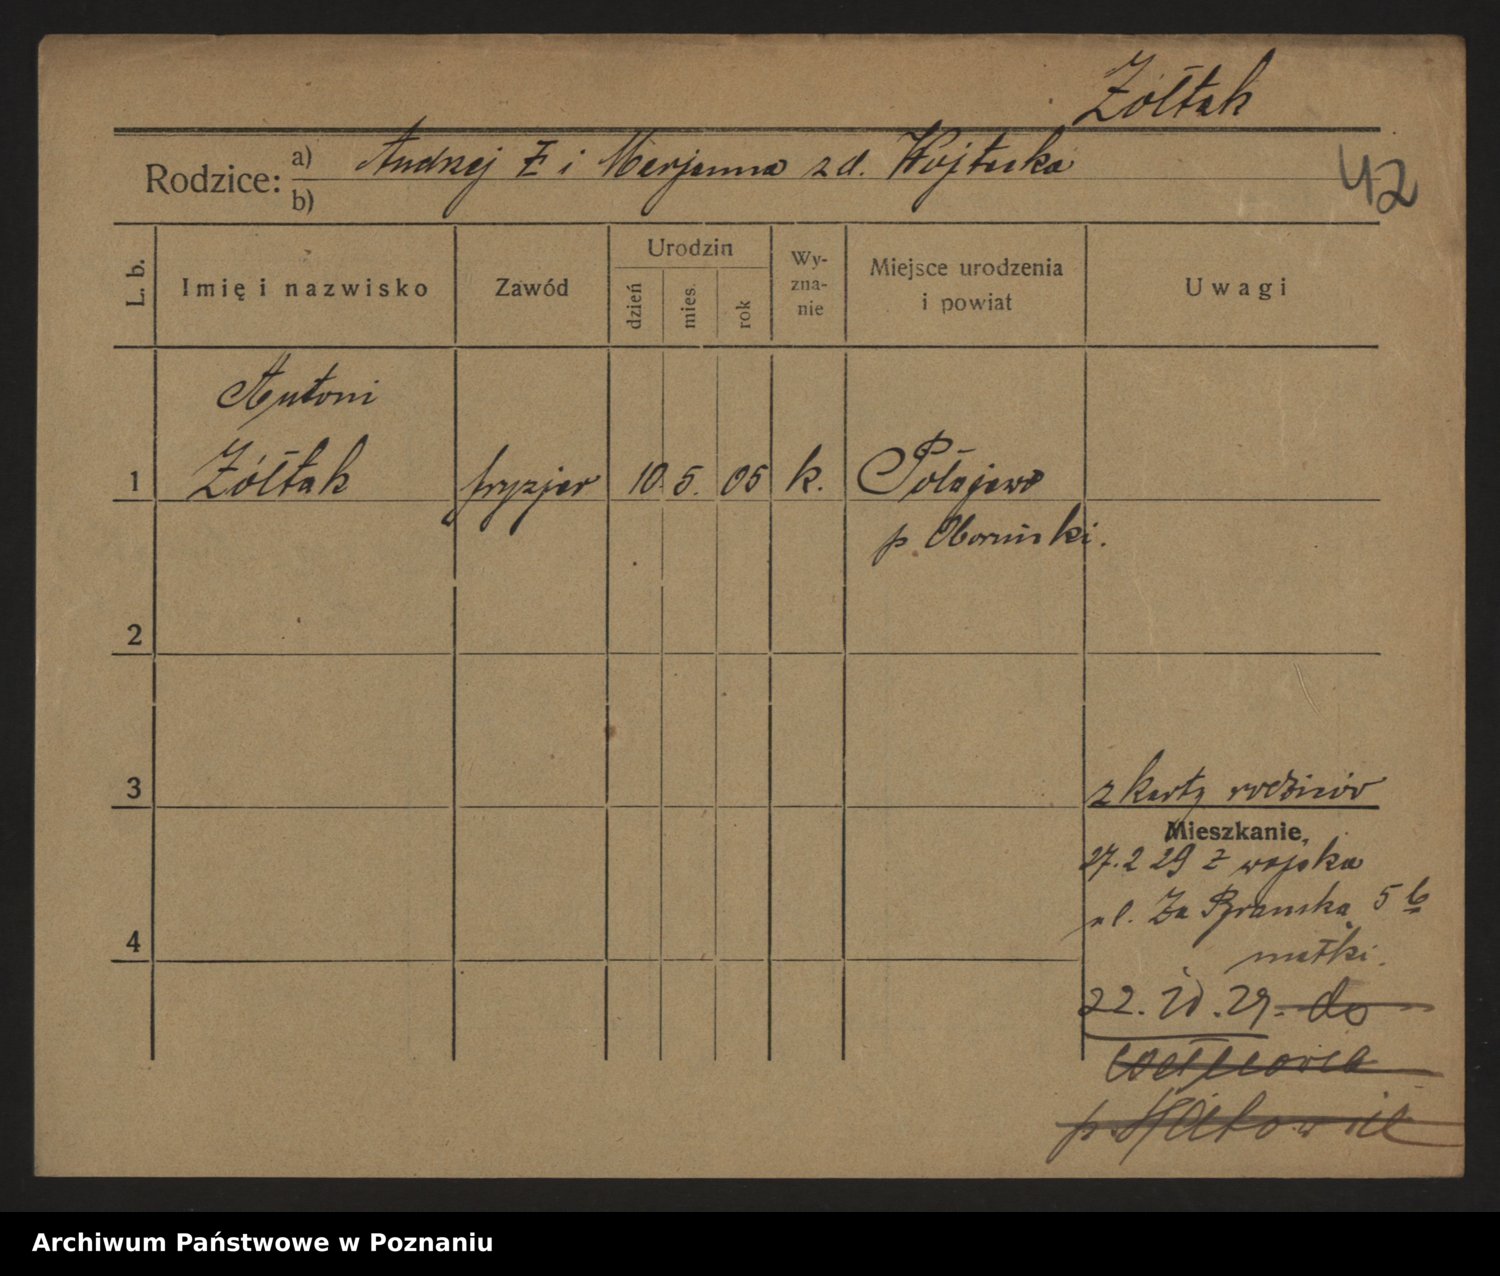 Żółtak
Rodzice: a) Andrzej Ż i Marjanna zd. Wojtecka
b)
42
L. b.
Imię i nazwisko
Zawód
Urodzin
dzień
mies.
rok
Wy-
zna-
nie
Miejsce urodzenia
i powiat
Uwagi
Antoni
1 Żółtak fryzjer 10. 5. 05 k. Połajewo
p. Obornicki.
2
3
z karty rodziców
Mieszkanie
27.2 29 z wojska
ul. Za Bramką 5 b
matki.
4
22. 10. 29. do
p. Katowic
Archiwum Państwowe w Poznaniu